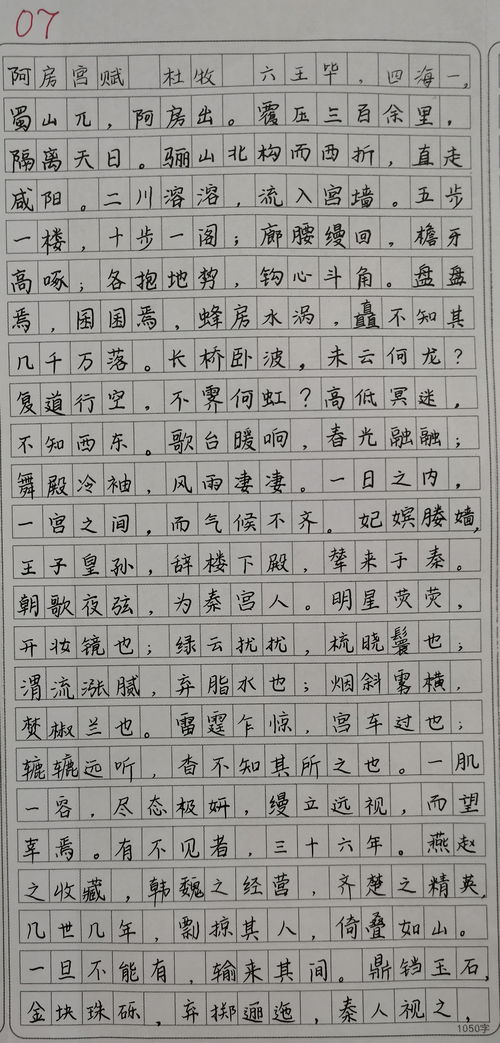 07
阿房宫赋 杜牧 六王毕，四海一，
蜀山兀，阿房出。覆压三百余里，
隔离天日。骊山北构而西折，直走
咸阳。二川溶溶，流入宫墙。五步
一楼，十步一阁；廊腰缦回，檐牙
高啄；各抱地势，钩心斗角。盘盘
焉，囷囷焉，蜂房水涡，矗不知其
几千万落。长桥卧波，未云何龙？
复道行空，不霁何虹？高低冥迷，
不知西东。歌台暖响，春光融融；
舞殿冷袖，风雨凄凄。一日之内，
一宫之间，而气候不齐。妃嫔媵嫱，
王子皇孙，辞楼下殿，辇来于秦。
朝歌夜弦，为秦宫人。明星荧荧，
开妆镜也；绿云扰扰，梳晓鬟也；
渭流涨腻，弃脂水也；烟斜雾横，
焚椒兰也。雷霆乍惊，宫车过也；
辘辘远听，杳不知其所之也。一肌
一容，尽态极妍，缦立远视，而望
幸焉。有不见者，三十六年。燕赵
之收藏，韩魏之经营，齐楚之精英，
几世几年，剽掠其人，倚叠如山。
一旦不能有，输来其间。鼎铛玉石，
金块珠砾，弃掷逦迤，秦人视之，
1050字